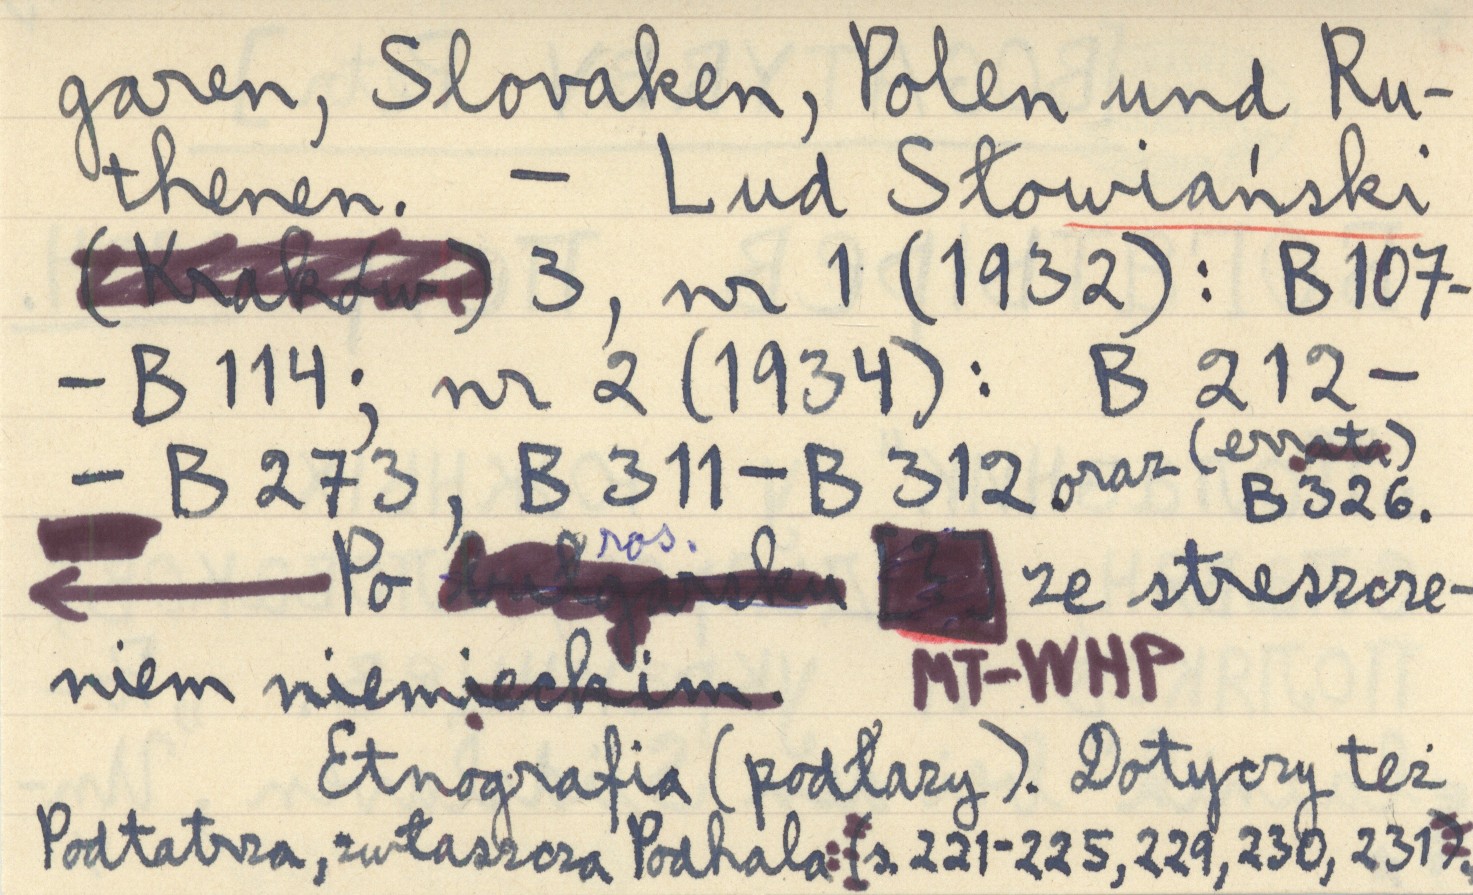 garen, Slovaken, Polen und Ru-
thenen. – Lud Słowiański
(Kraków) 3, nr 1 (1932): B 107-
- B 114; nr 2 (1934): B 212-
- B 273, B 311 - B 312 oraz (errata) B 326.
ros.
Po bułgarsku [3] ze streszcze-
niem niemieckim. MT-WHP
Etnografia (podłazy). Dotyczy też
Podtatrza, zwłaszcza Podhala (s. 221-225, 229, 230, 231).